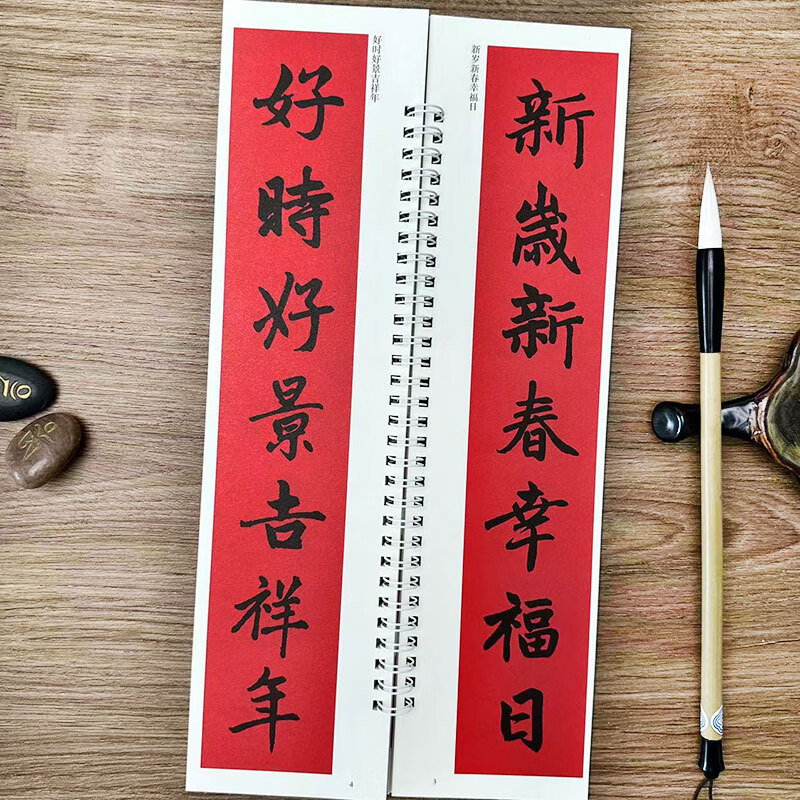 新歲新春幸福日
新岁新春幸福日
好時好景吉祥年
好时好景吉祥年
3
4